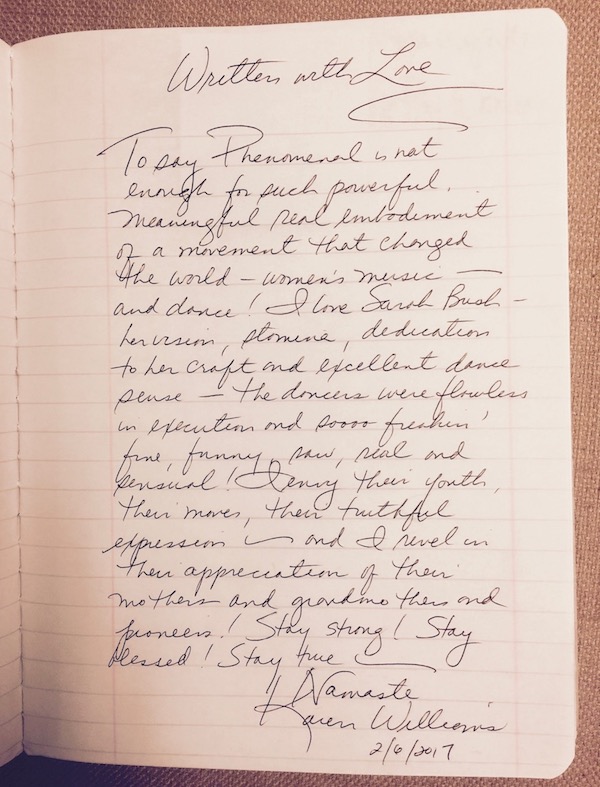 Written with Love
To say Phenomenal is not
enough for such powerful,
meaningful real embodiment
of a movement that changed
the world – women's music —
and dance! I love Sarah Bush –
her vision, stamina, dedication
to her craft and excellent dance
sense — the dancers were flawless
in execution and soooo freakin'
fine, funny, raw, real and
sensual! I envy their youth,
their moves, their truthful
expression — and I revel in
their appreciation of their
mothers and grandmothers and
pioneers! Stay strong! Stay
blessed! Stay true —
Namaste
Karen Williams
2/6/2017